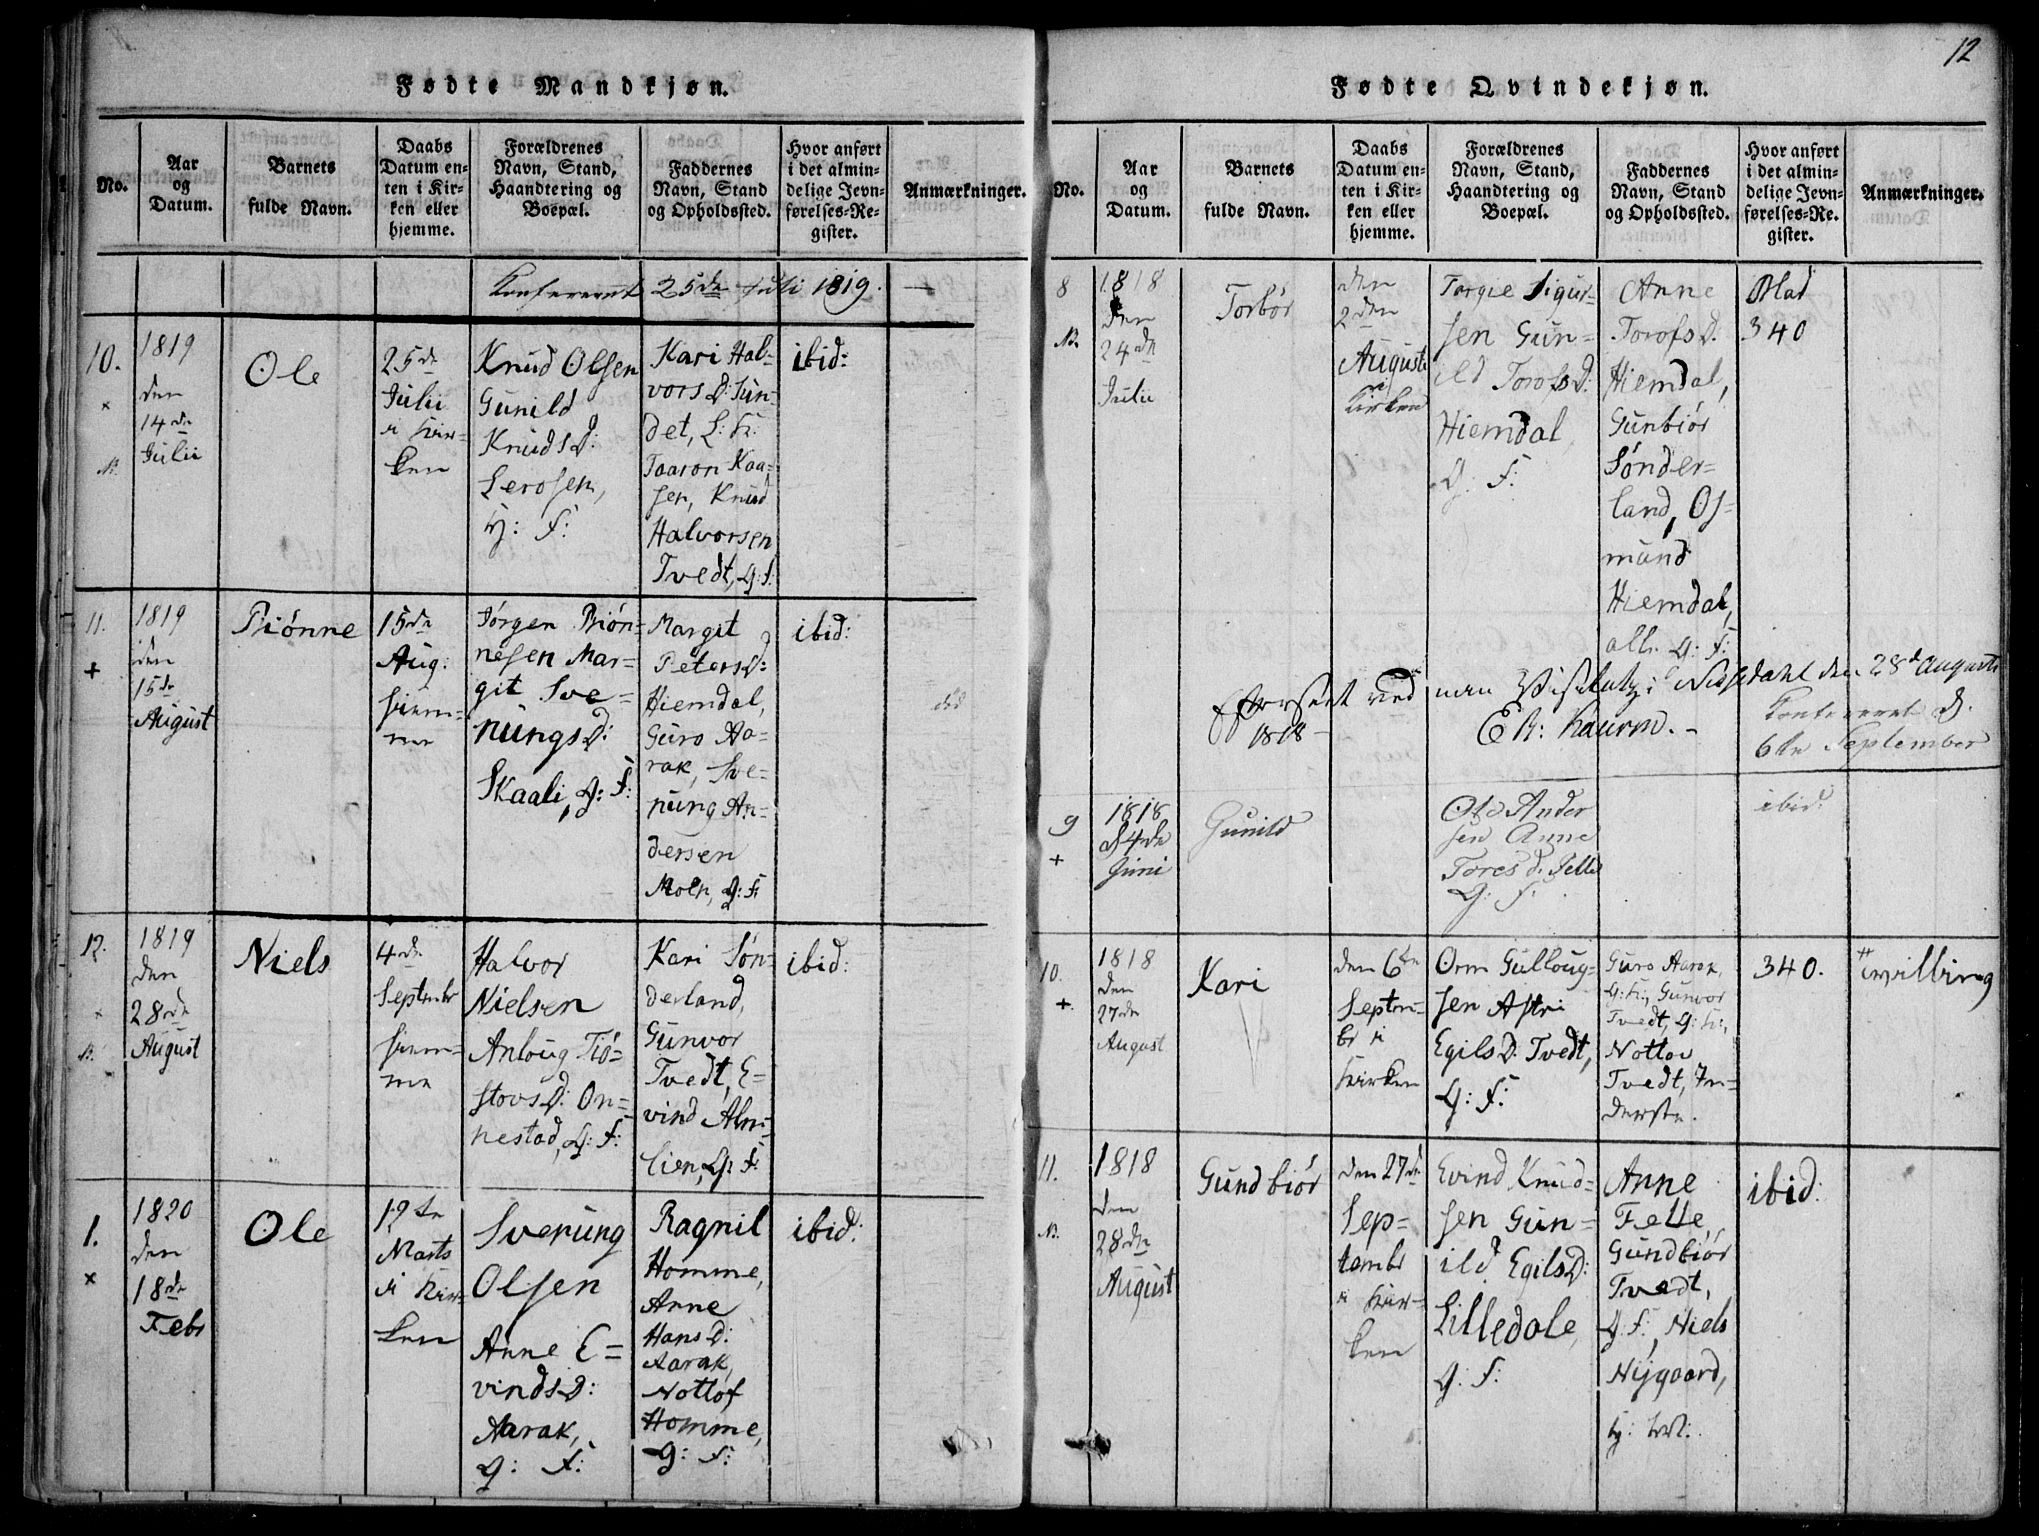 Fødte Mandkjøn.
No.
Aar
og
Datum.
Barnets
fulde Navn.
Daabs
Datum en-
ten i Kir-
ken eller
hjemme.
Forældrenes
Navn, Stand,
Haandtering og
Boepæl.
Faddernes
Navn, Stand
og Opholdssted.
Hvor anført
i det almin-
delige Jevn-
førelses-Re-
gister.
Anmærkninger.
Confereret 25de Juli 1819.
10.
1819
den
14de
Julii
Ole
25de
Julii
i Kir-
ken
Knud Olsen
Gunild
KnudsD:
Lerosen,
G: F:
Kari Hal-
vorsD: Sun-
det,
Taaron Kaa-
sen, Knud
Halvorsen
Tvedt, G: F:
ibid:
11.
+
1819
den
15de
August
Biønne
15de
Aug:
hiem-
me
Jørgen Biøn-
nesen Mar-
git Sve-
nungsD:
Skaali, G: F:
Margit
PetersD:
Hiemdal,
Guro Aa-
rak, Sve-
nung An-
dersen
Moen, G: F:
ibid:
12.
1819
den
28de
August
Niels
4de
Septembr
hiem-
me
Halvor
Nielsen
Anloug Tiø-
stovsD: On-
nestad, G: F:
Kari Søn-
derland,
Gunvor
Tvedt, E-
vind Alm-
lien, G: F:
ibid:
1.
x
1820
den
18de
Febr
Ole
12te
Marts
i Kir-
ken
Svenung
Olsen
Anne E-
vindsD:
Aarak,
G: F:
Ragnil
Homme,
Anne
HansD:
Aarak,
Nottof
Homme,
G: F:
ibid:
12
Fødte Qvindekjøn.
No.
Aar
og
Datum.
Barnets
fulde Navn.
Daabs
Datum en-
ten i Kir-
ken eller
hjemme.
Forældrenes
Navn, Stand,
Haandtering og
Boepæl.
Faddernes
Navn, Stand
og Opholdssted.
Hvor anført
i det almin-
delige Jevn-
førelses-Re-
gister.
Anmærkninger.
8
1818
den
24de
Julii
Torbør
den
2den
Augusti
i Kirken
Torgie Sigur-
sen Gun-
ild TorofsD:
Hiemdal,
G: F:
Anne
TorofsD:
Hiemdal,
Gunbiør
Sønder-
land, Os-
mund
Hiemdal,
alle G: F:
Blad
340
Efterseet ved min Visitatz i Nissedahl den 28d Augusti
1818 –
Confereret d.
6te September
9
+
1818
d 4de
Juni
Gunild
Ole Ander
sen Anne
Tores d. Felle
G: F:
ibid:
10.
+.
1818
den
27de
August
Kari
den 6te
Septem-
br i
Kirken
Orm Gulloug-
sen Astri
EgilsD: Tvedt,
G: F:
Guro Aarak,
Gunvor
Tvedt,
Nottov
Tvedt, In-
derste.
340.
tvilling
11.
1818
den
28de
August
Gundbiør
den 27de
Sep-
tembr
i Kir-
ken
Evind Knud-
sen Gun-
ild EgilsD:
Lilledale,
G: F:
Anne
Felle,
Gundbiør
Tvedt,
G: F:, Niels
Nijgaard,
ibid: